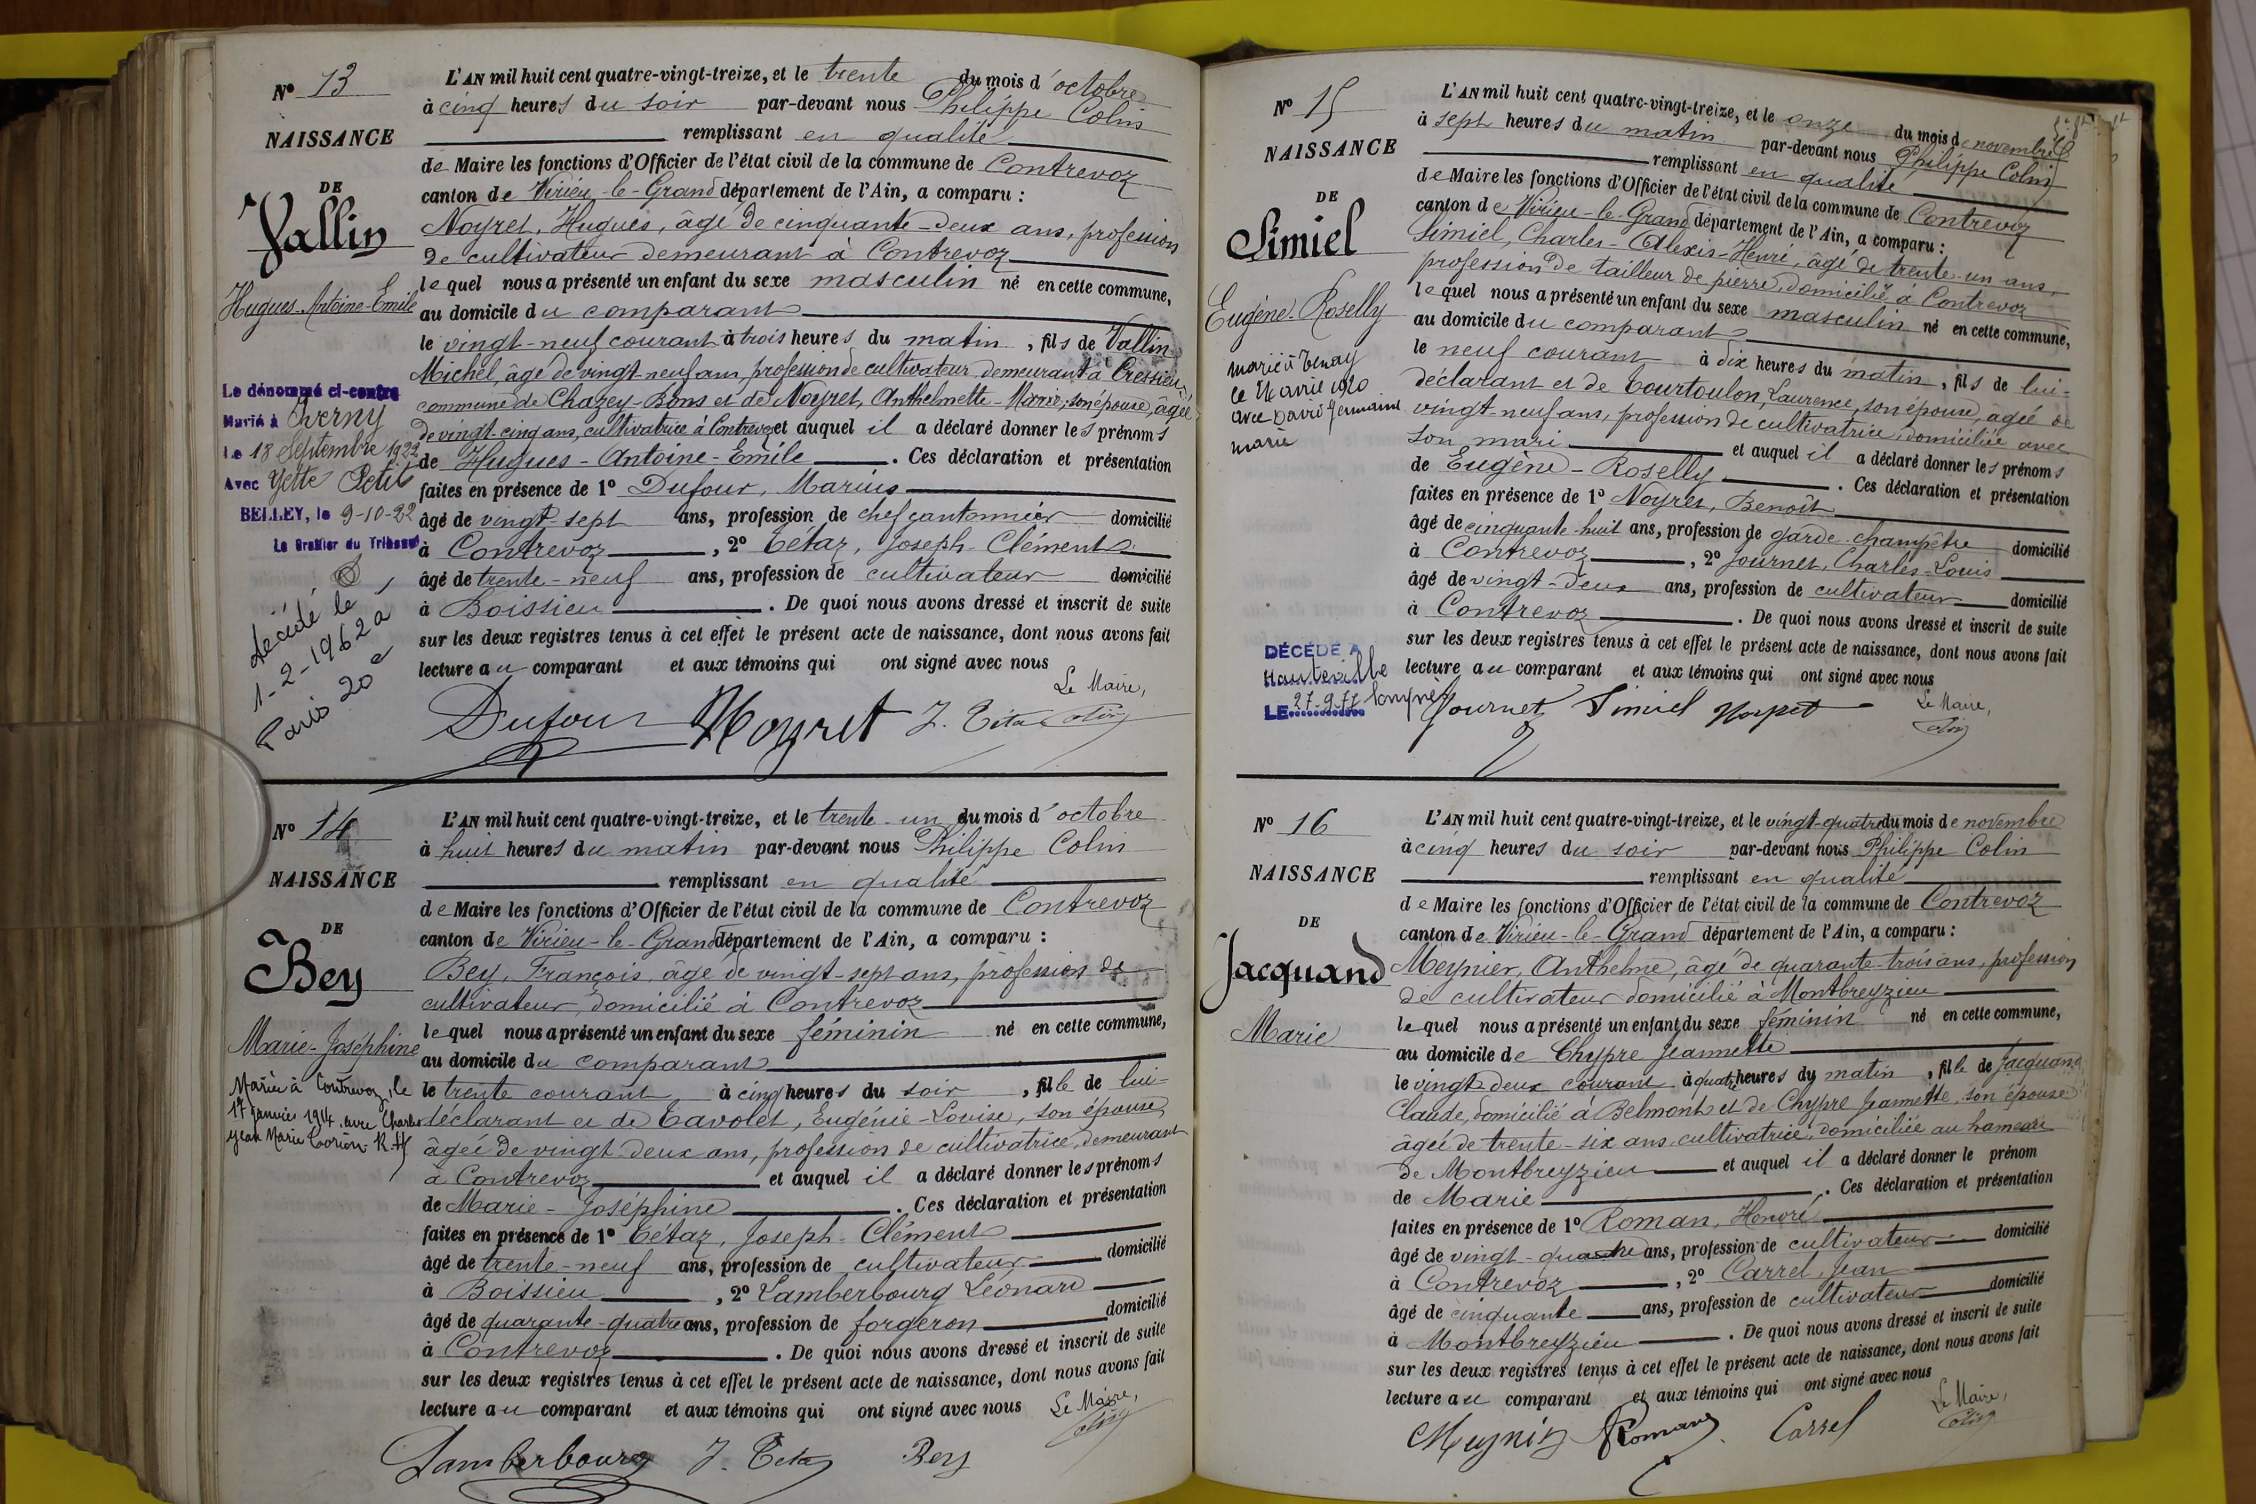 N° 13
NAISSANCE
DE
Vallin
Hugues-Antoine-Emile
Le dénommé ci-contre
Marié à Cverny
Le 18 Septembre 1922
Avec Yette Petit
BELLEY, le 9-10-22
Le Greffier du Tribunal
décédé le
1-2-1962 a
Paris 20e
L'AN mil huit cent quatre-vingt-treize, et le trente du mois d'octobre
à cinq heures du soir par-devant nous Philippe Colin
remplissant en qualité
de Maire les fonctions d'Officier de l'état civil de la commune de Contrevoz
canton de Virieu-le-Grand département de l'Ain, a comparu :
Noyret, Hugues, âgé de cinquante-deux ans, profession
de cultivateur demeurant à Contrevoz
lequel nous a présenté un enfant du sexe masculin né en cette commune,
au domicile du comparant
le vingt-neuf courant à trois heures du matin, fils de Vallin
Michel, âgé de vingt-neuf ans, profession de cultivateur demeurant à Cressieu
commune de Chazey-Bons et de Noyret, Anthelmette-Marie, son épouse, âgée
de vingt-cinq ans, cultivatrice à Contrevoz et auquel il a déclaré donner les prénoms
de Hugues-Antoine-Emile . Ces déclaration et présentation
faites en présence de 1° Dufour, Marius
âgé de vingt-sept ans, profession de chef cantonnier domicilié
à Contrevoz , 2° Tétaz, Joseph-Clément
âgé de trente-neuf ans, profession de cultivateur domicilié
à Boissieu . De quoi nous avons dressé et inscrit de suite
sur les deux registres tenus à cet effet le présent acte de naissance, dont nous avons fait
lecture au comparant et aux témoins qui ont signé avec nous
Le Maire,
Dufour Noyret J. Tétaz Colin
N° 14
NAISSANCE
DE
Bey
Marie-Joséphine
Mariée à Contrevoz, le
17 janvier 1914 avec Charles
Jean Marie
L'AN mil huit cent quatre-vingt-treize, et le trente-un du mois d'octobre
à huit heures du matin par-devant nous Philippe Colin
remplissant en qualité
de Maire les fonctions d'Officier de l'état civil de la commune de Contrevoz
canton de Virieu-le-Grand département de l'Ain, a comparu :
Bey, François, âgé de vingt-sept ans, profession de
cultivateur, domicilié à Contrevoz
lequel nous a présenté un enfant du sexe féminin né en cette commune,
au domicile du comparant
le trente courant à cinq heures du soir, fille de lui-
déclarant et de Cavolet, Eugénie-Louise, son épouse,
âgée de vingt-deux ans, profession de cultivatrice, demeurant
à Contrevoz et auquel il a déclaré donner les prénoms
de Marie-Joséphine . Ces déclaration et présentation
faites en présence de 1° Tétaz, Joseph-Clément
âgé de trente-neuf ans, profession de cultivateur domicilié
à Boissieu , 2° Lamberbourg Léonard
âgé de quarante-quatre ans, profession de forgeron domicilié
à Contrevoz . De quoi nous avons dressé et inscrit de suite
sur les deux registres tenus à cet effet le présent acte de naissance, dont nous avons fait
lecture au comparant et aux témoins qui ont signé avec nous
Le Maire,
Lamberbourg J. Tétaz Bey Colin
N° 15
NAISSANCE
DE
Simiel
Eugène-Roselly
marié à Tenay
avec David Germaine
marie
DÉCÉDÉ A
Hauteville
Lompnes
LE 27-9-77
L'AN mil huit cent quatre-vingt-treize, et le onze du mois de novembre
à sept heures du matin par-devant nous Philippe Colin
remplissant en qualité
de Maire les fonctions d'Officier de l'état civil de la commune de Contrevoz
canton de Virieu-le-Grand département de l'Ain, a comparu :
Simiel, Charles-Alexis-Henri, âgé de trente-un ans,
profession de tailleur de pierre, domicilié à Contrevoz
lequel nous a présenté un enfant du sexe masculin né en cette commune,
au domicile du comparant
le neuf courant à dix heures du matin, fils de lui-
déclarant et de Courtoulon, Laurence, son épouse, âgée de
vingt-neuf ans, profession de cultivatrice, domiciliée avec
son mari et auquel il a déclaré donner les prénoms
de Eugène-Roselly . Ces déclaration et présentation
faites en présence de 1° Noyret, Benoît
âgé de cinquante-huit ans, profession de garde-champêtre domicilié
à Contrevoz , 2° Journet, Charles-Louis
âgé de vingt-deux ans, profession de cultivateur domicilié
à Contrevoz . De quoi nous avons dressé et inscrit de suite
sur les deux registres tenus à cet effet le présent acte de naissance, dont nous avons fait
lecture au comparant et aux témoins qui ont signé avec nous
Le Maire,
Journet Simiel Noyret Colin
N° 16
NAISSANCE
DE
Jacquand
Marie
L'AN mil huit cent quatre-vingt-treize, et le vingt-quatre du mois de novembre
à cinq heures du soir par-devant nous Philippe Colin
remplissant en qualité
de Maire les fonctions d'Officier de l'état civil de la commune de Contrevoz
canton de Virieu-le-Grand département de l'Ain, a comparu :
Meynier, Anthelme, âgé de quarante-trois ans, profession
de cultivateur domicilié à Montbreyzieu
lequel nous a présenté un enfant du sexe féminin né en cette commune,
au domicile de Chypre Jeannette
le vingt-deux courant à quatre heures du matin, fille de Jacquand
Claude, domicilié à Belmont et de Chypre Jeannette, son épouse
âgée de trente-six ans, cultivatrice, domiciliée au hameau
de Montbreyzieu et auquel il a déclaré donner le prénom
de Marie . Ces déclaration et présentation
faites en présence de 1° Roman, Honoré
âgé de vingt-quatre ans, profession de cultivateur domicilié
à Contrevoz , 2° Carrel, Jean
âgé de cinquante ans, profession de cultivateur domicilié
à Montbreyzieu . De quoi nous avons dressé et inscrit de suite
sur les deux registres tenus à cet effet le présent acte de naissance, dont nous avons fait
lecture au comparant et aux témoins qui ont signé avec nous
Le Maire,
Meynier Roman Carrel Colin